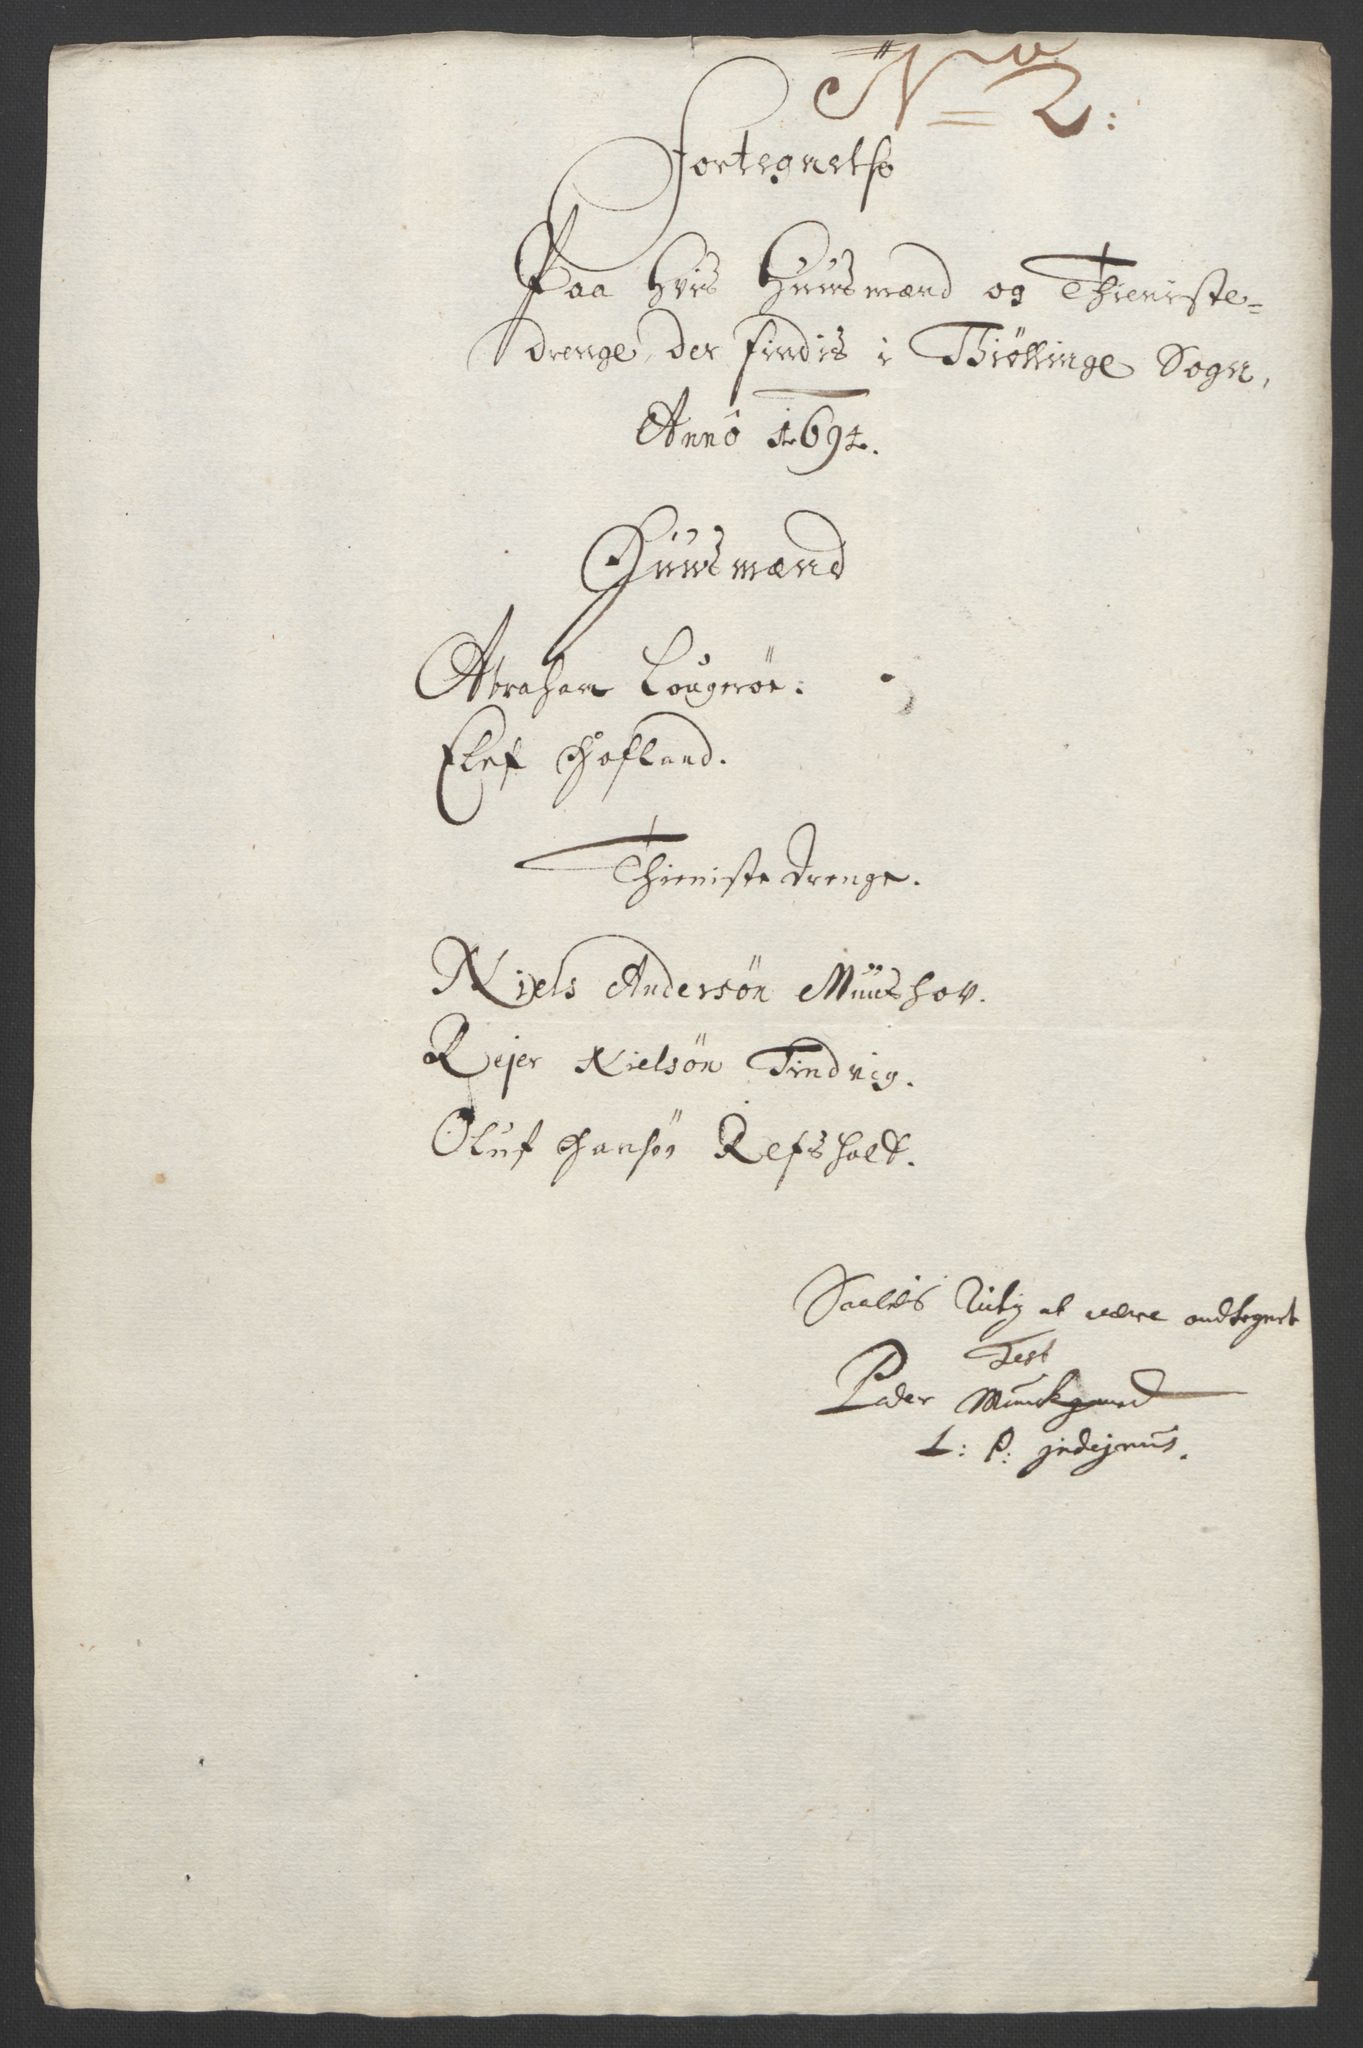 No 2:
Fortegnelse
Paa hvis Huusmænd og Thieniste=
drenge, der findis i Thiøllinge Sogn,
Anno 1694.
Huusmænd
Abraham Lougerön:
Elef Hofland.
Thieniste drenge.
Niels Andersön Muushov.
Rejer Nielsön Tindvig.
Oluf Hansön Refsholt.
Saaledis Rictig at være andtegnet
Test
Peder Munckgaard
L: P: indignus.